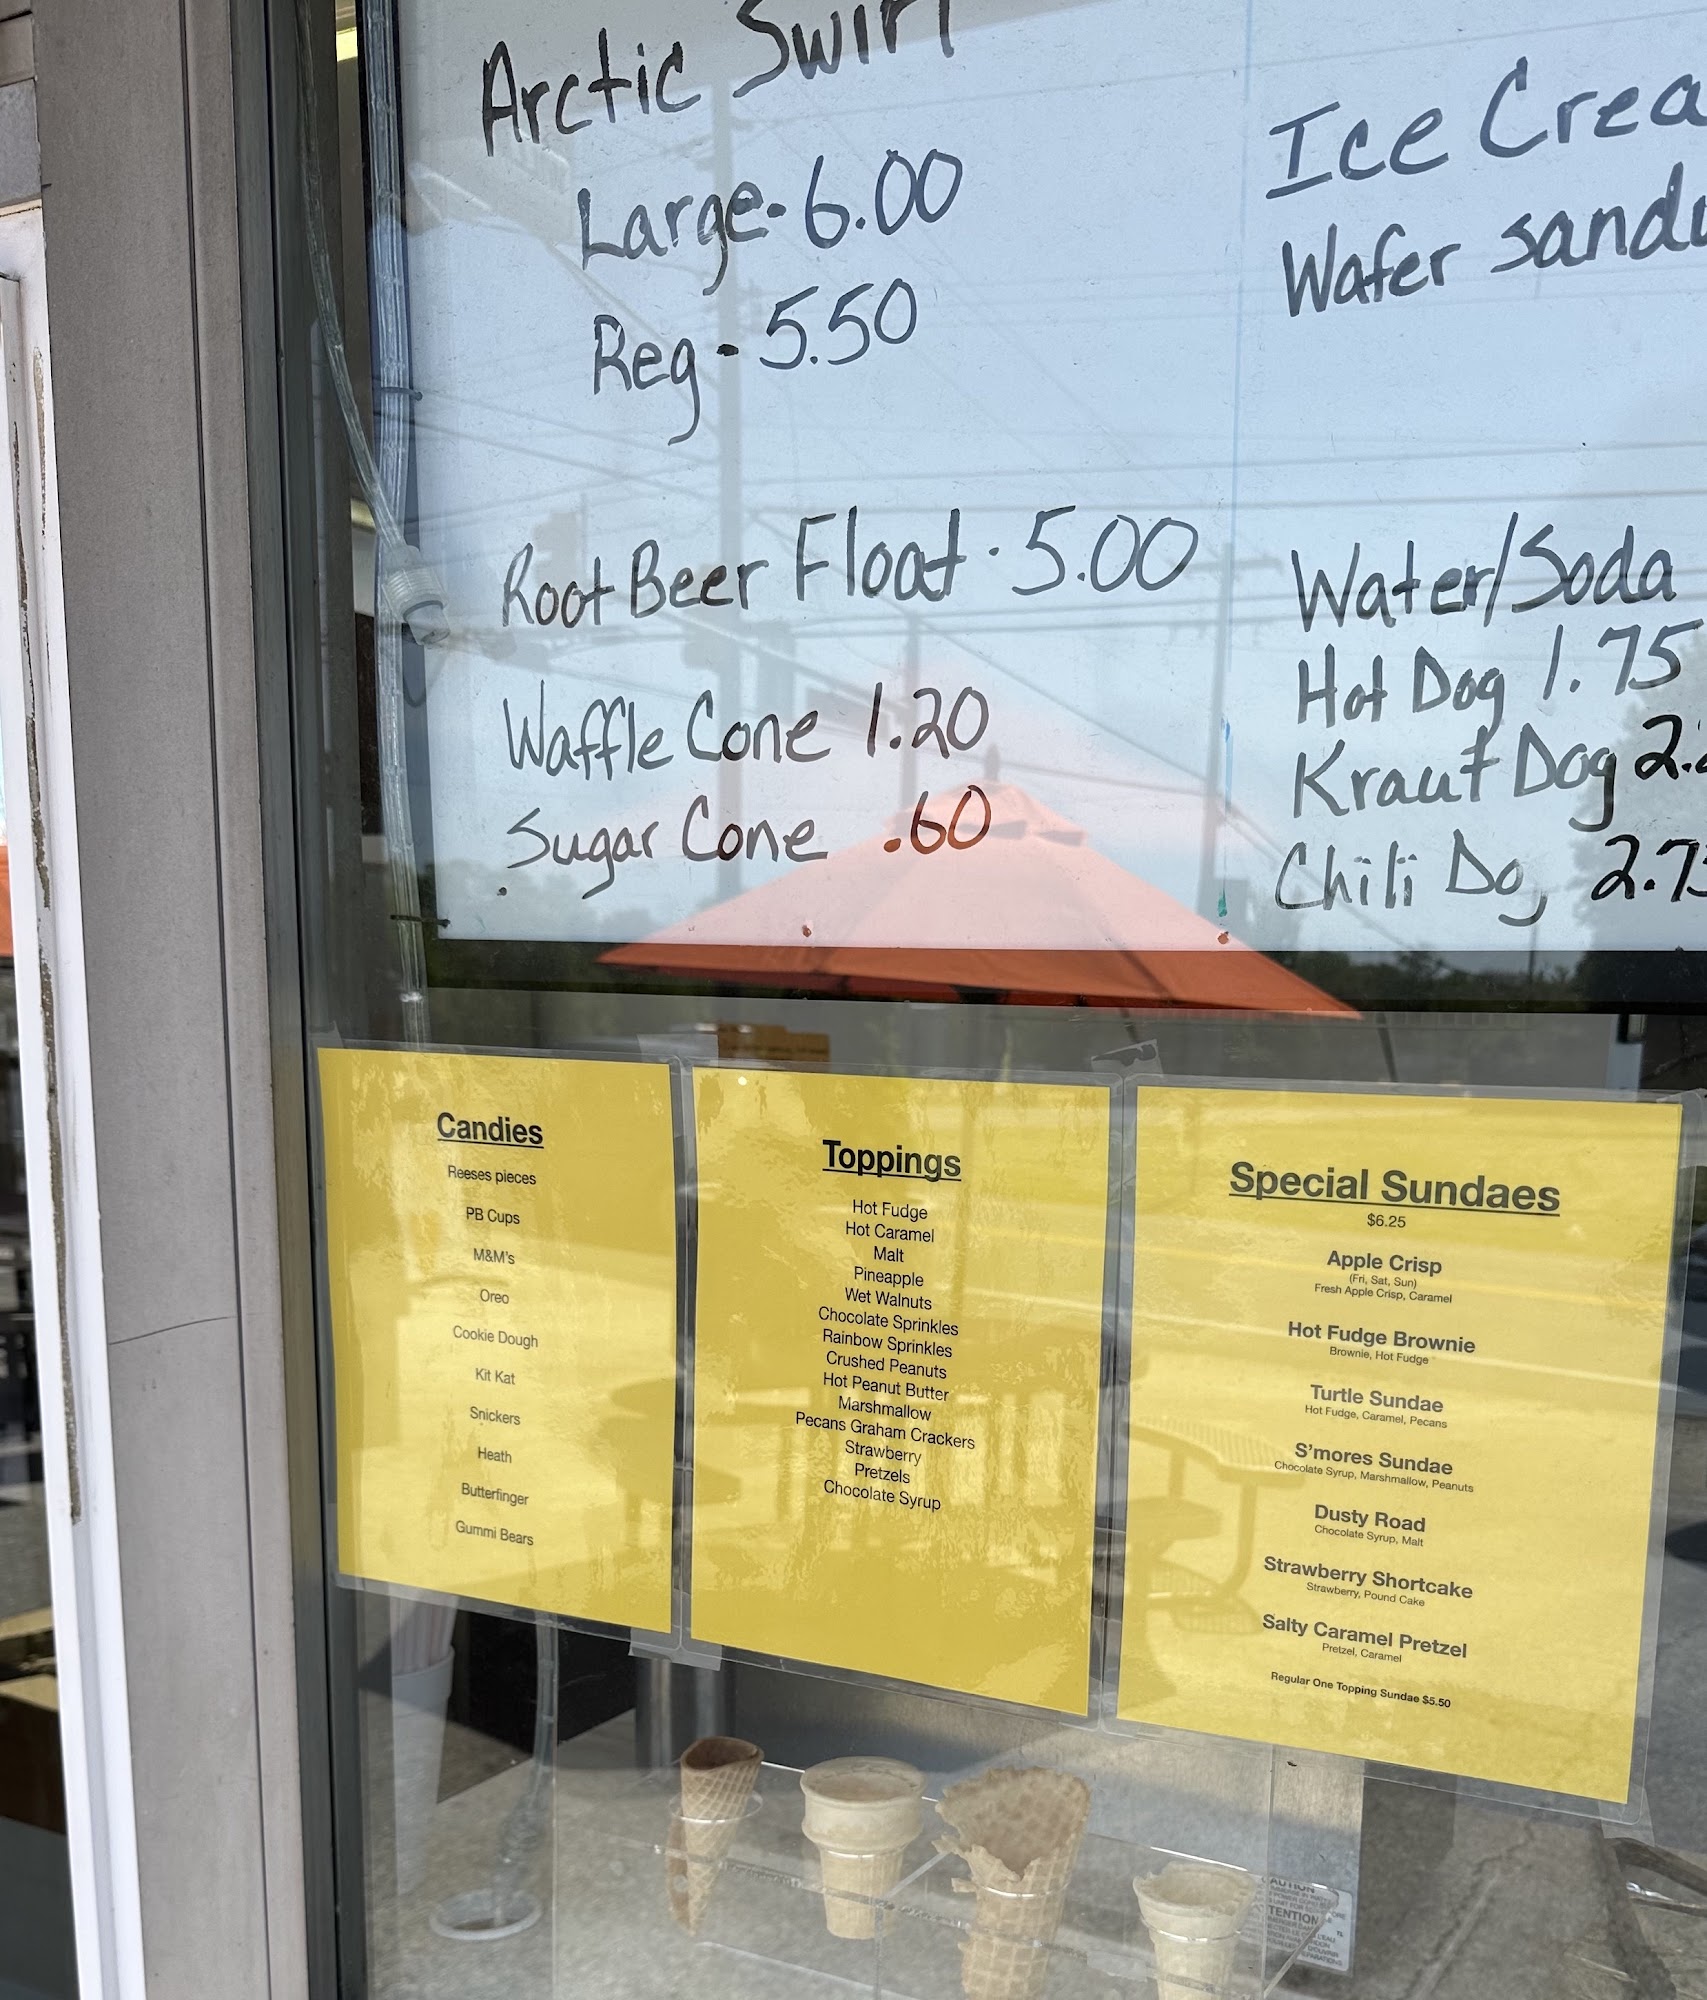 Arctic Swirl
Large - 6.00
Reg - 5.50
Root Beer Float - 5.00
Waffle Cone 1.20
Sugar Cone .60
Ice Crea
Wafer sand
Water/Soda
Hot Dog 1.75
Kraut Dog 2.
Chili Dog 2.75
Candies
Reeses pieces
PB Cups
M&M's
Oreo
Cookie Dough
Kit Kat
Snickers
Heath
Butterfinger
Gummi Bears
Toppings
Hot Fudge
Hot Caramel
Malt
Pineapple
Wet Walnuts
Chocolate Sprinkles
Rainbow Sprinkles
Crushed Peanuts
Hot Peanut Butter
Marshmallow
Pecans Graham Crackers
Strawberry
Pretzels
Chocolate Syrup
Special Sundaes
$6.25
Apple Crisp
(Fri, Sat, Sun)
Fresh Apple Crisp, Caramel
Hot Fudge Brownie
Brownie, Hot Fudge
Turtle Sundae
Hot Fudge, Caramel, Pecans
S'mores Sundae
Chocolate Syrup, Marshmallow, Peanuts
Dusty Road
Chocolate Syrup, Malt
Strawberry Shortcake
Strawberry, Pound Cake
Salty Caramel Pretzel
Pretzel, Caramel
Regular One Topping Sundae $5.50